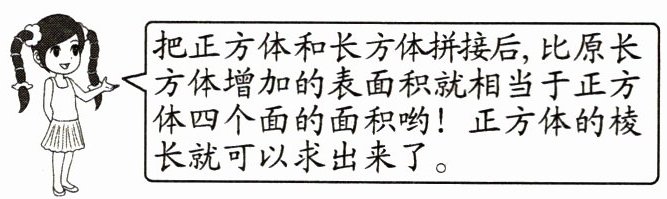 把正方体和长方体拼接后,比原长
方体增加的表面积就相当于正方
体四个面的面积哟!正方体的棱
长就可以求出来了。